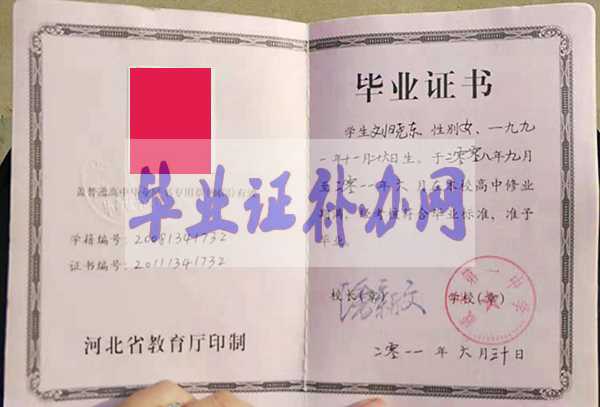 盖普通高中毕业
有效
学籍编号:20081341732
证书编号:20111341732
河北省教育厅印制
毕业证补办网
毕业证书
学生刘晓东、性别女、一九九
一年十一月二十六日生,于二零零八年九月
至二零一一年六月在本校高中修业
期满,
符合毕业标准,准予
毕业。
校长(章)
学校(章)
第一中学
二零一一年六月三十日